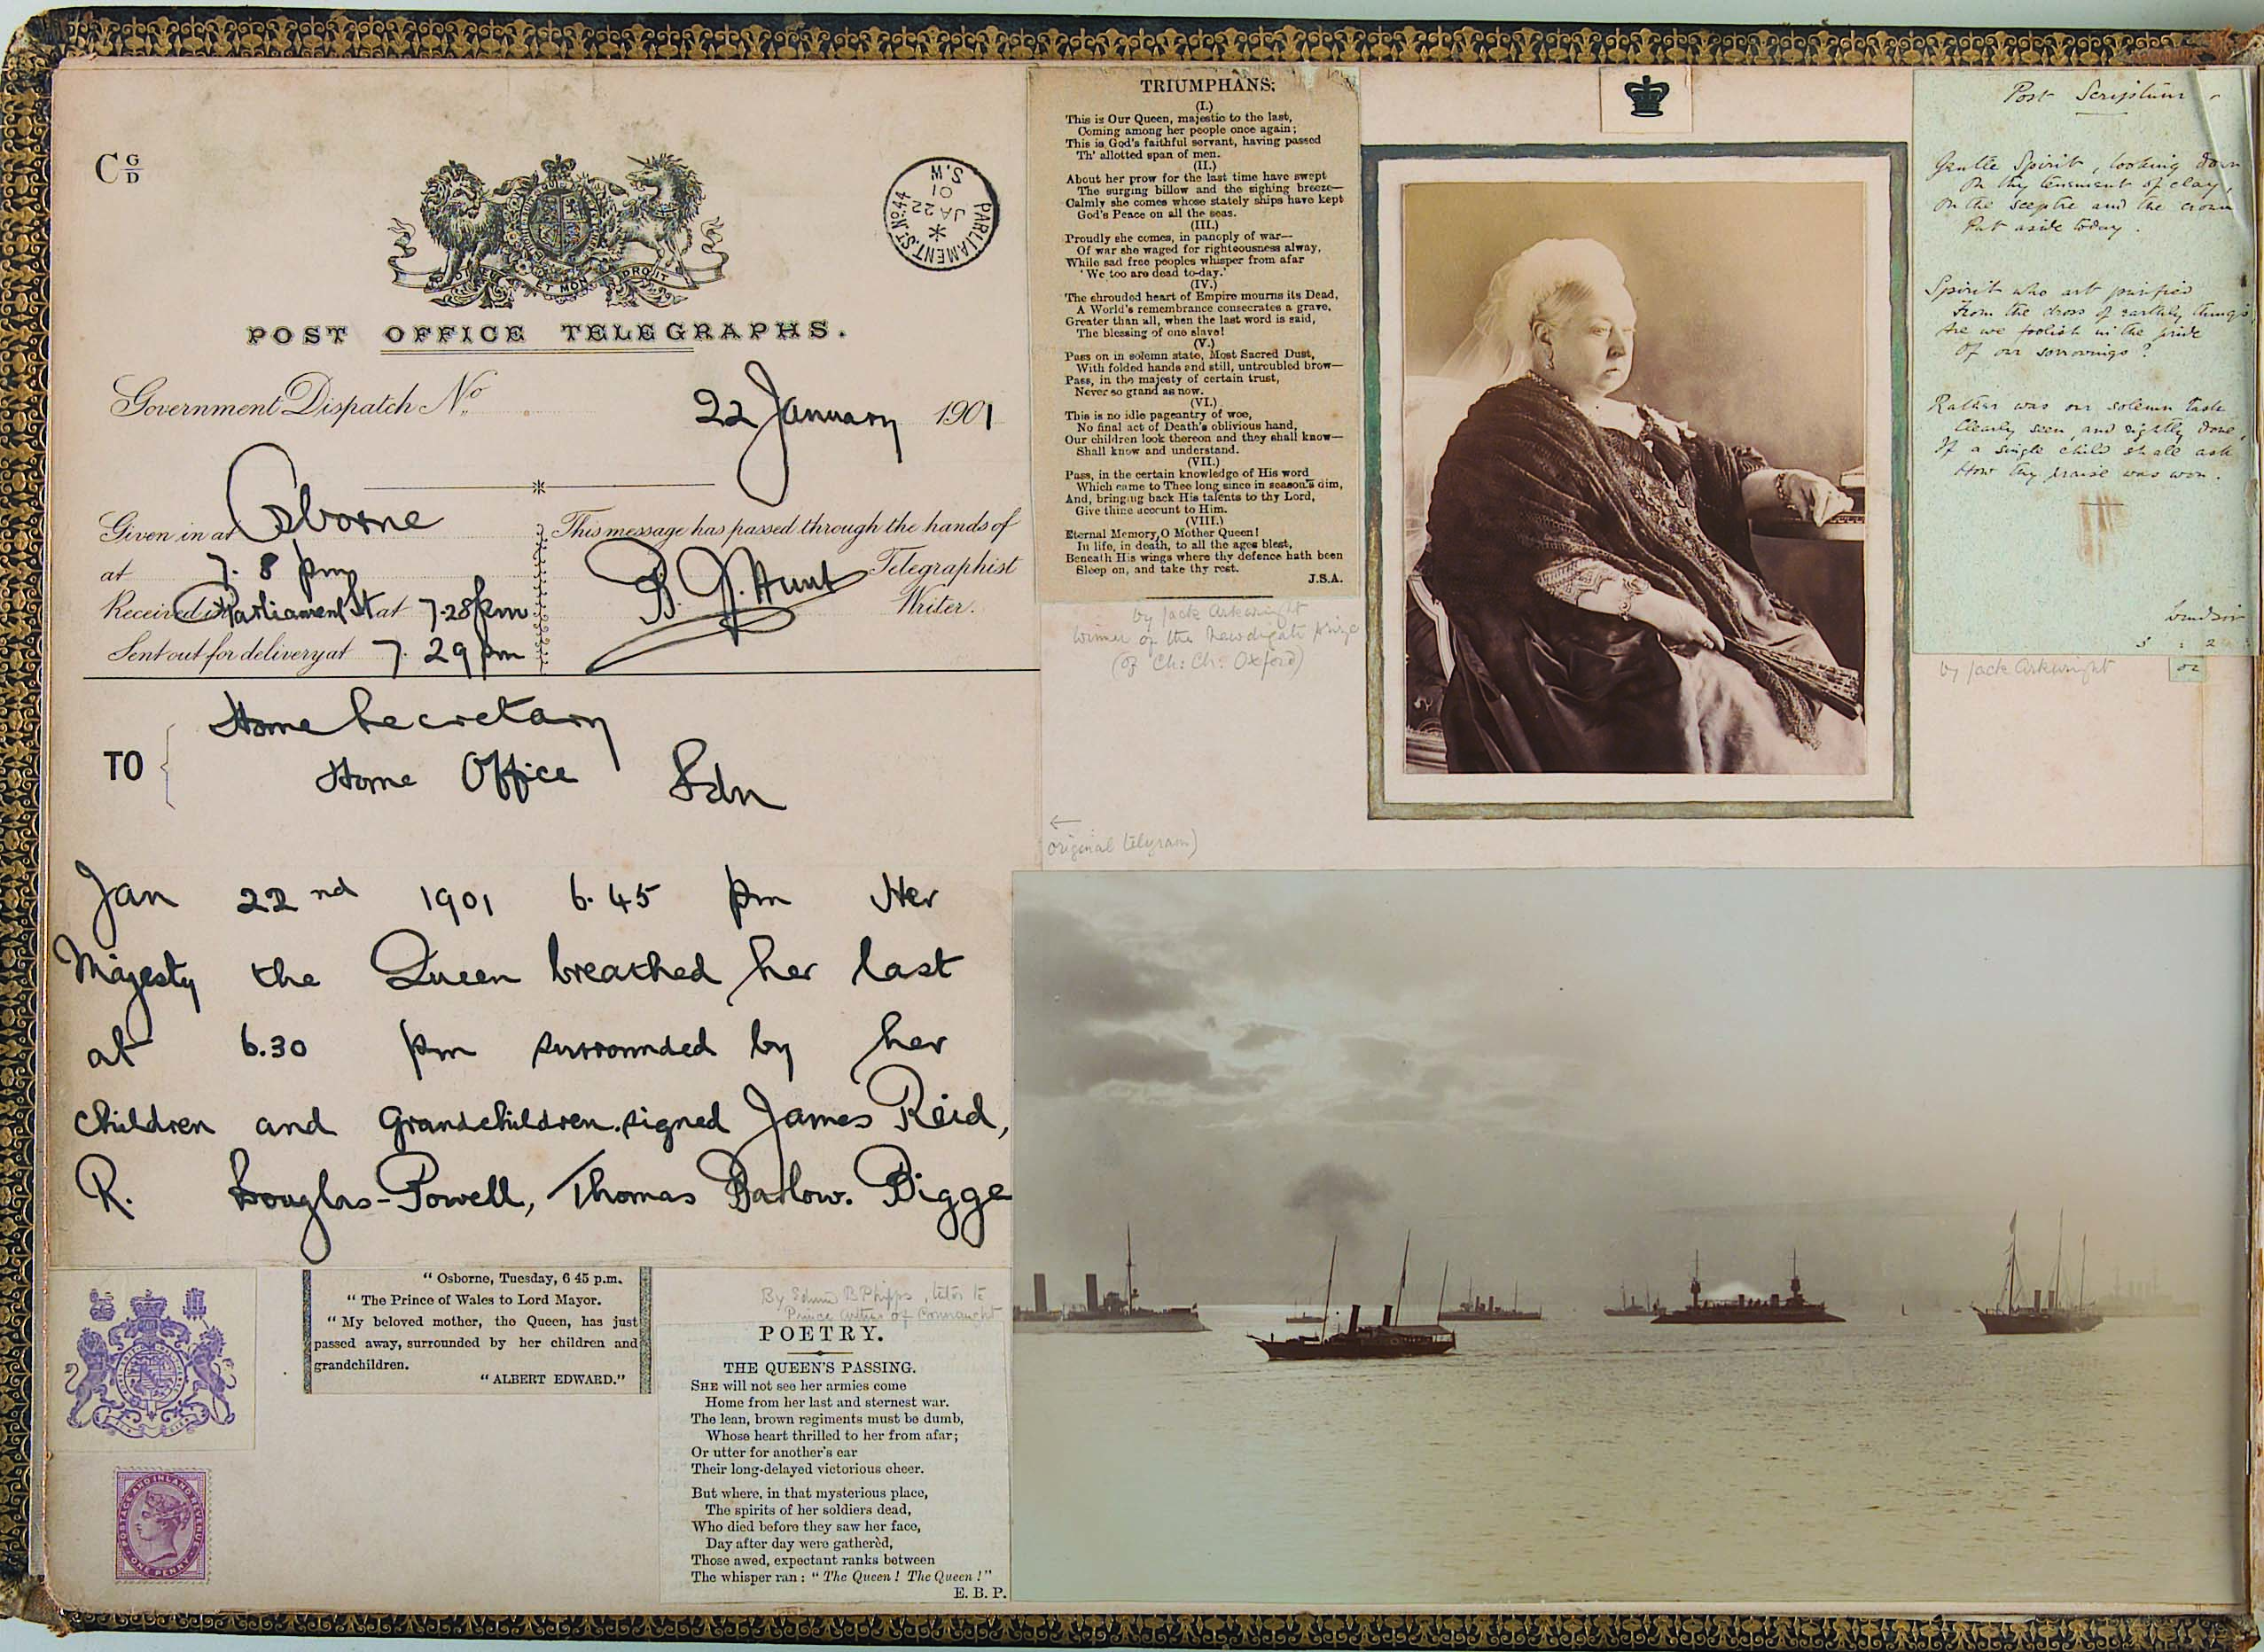 C G/D
DIEU ET MON DROIT
PARLIAMENT.ST.No.44
*
JA 22
01
S.W
POST OFFICE TELEGRAPHS.
Government Dispatch No.
22 January 1901
Given in at Osborne
at 7.8 pm
Received in Parliament St at 7.28 pm
Sent out for delivery at 7.29 pm
This message has passed through the hands of
B. J. Hunt Telegraphist
Writer.
TO
Home Secretary
Home Office Ldn
Jan 22nd 1901 6.45 pm Her
Majesty the Queen breathed her last
at 6.30 pm surrounded by her
children and grandchildren. signed James Reid,
R. Douglas-Powell, Thomas Barlow. Bigge
"Osborne, Tuesday, 6 45 p.m.
"The Prince of Wales to Lord Mayor.
"My beloved mother, the Queen, has just
passed away, surrounded by her children and
grandchildren.
"ALBERT EDWARD."
POSTAGE AND INLAND REVENUE
ONE PENNY
By Edmund B Phipps, tutor to
Prince Arthur of Connaught
POETRY.
THE QUEEN'S PASSING.
SHE will not see her armies come
Home from her last and sternest war.
The lean, brown regiments must be dumb,
Whose heart thrilled to her from afar;
Or utter for another's ear
Their long-delayed victorious cheer.
But where, in that mysterious place,
The spirits of her soldiers dead,
Who died before they saw her face,
Day after day were gathèrèd,
Those awed, expectant ranks between
The whisper ran: "The Queen! The Queen!"
E. B. P.
TRIUMPHANS:
(I.)
This is Our Queen, majestic to the last,
Coming among her people once again;
This is God's faithful servant, having passed
Th' allotted span of men.
(II.)
About her prow for the last time have swept
The surging billow and the sighing breeze—
Calmly she comes whose stately ships have kept
God's Peace on all the seas.
(III.)
Proudly she comes, in panoply of war—
Of war she waged for righteousness alway,
While sad free peoples whisper from afar
'We too are dead to-day.'
(IV.)
The shrouded heart of Empire mourns its Dead,
A World's remembrance consecrates a grave,
Greater than all, when the last word is said,
The blessing of one slave!
(V.)
Pass on in solemn state, Most Sacred Dust,
With folded hands and still, untroubled brow—
Pass, in the majesty of certain trust,
Never so grand as now.
(VI.)
This is no idle pageantry of woe,
No final act of Death's oblivious hand,
Our children look thereon and they shall know—
Shall know and understand.
(VII.)
Pass, in the certain knowledge of His word
Which came to Thee long since in season's dim,
And, bringing back His talents to thy Lord,
Give thine account to Him.
(VIII.)
Eternal Memory, O Mother Queen!
In life, in death, to all the ages blest,
Beneath His wings where thy defence hath been
Sleep on, and take thy rest.
J.S.A.
by Jack Arkwright
winner of the Newdigate prize
(of Ch: Ch: Oxford)
←
original telegram)
Post Scriptum
Gentle Spirit, looking down
On thy tenement of clay,
On the sceptre and the crown
Put aside today.
Spirit who art purified
From the dross of earthly things,
Are we foolish in the pride
Of our sorrowings?
Rather was our solemn task
Clearly seen, and rightly done,
If a single child shall ask
How thy praise was won.
Windsor
by Jack Arkwright